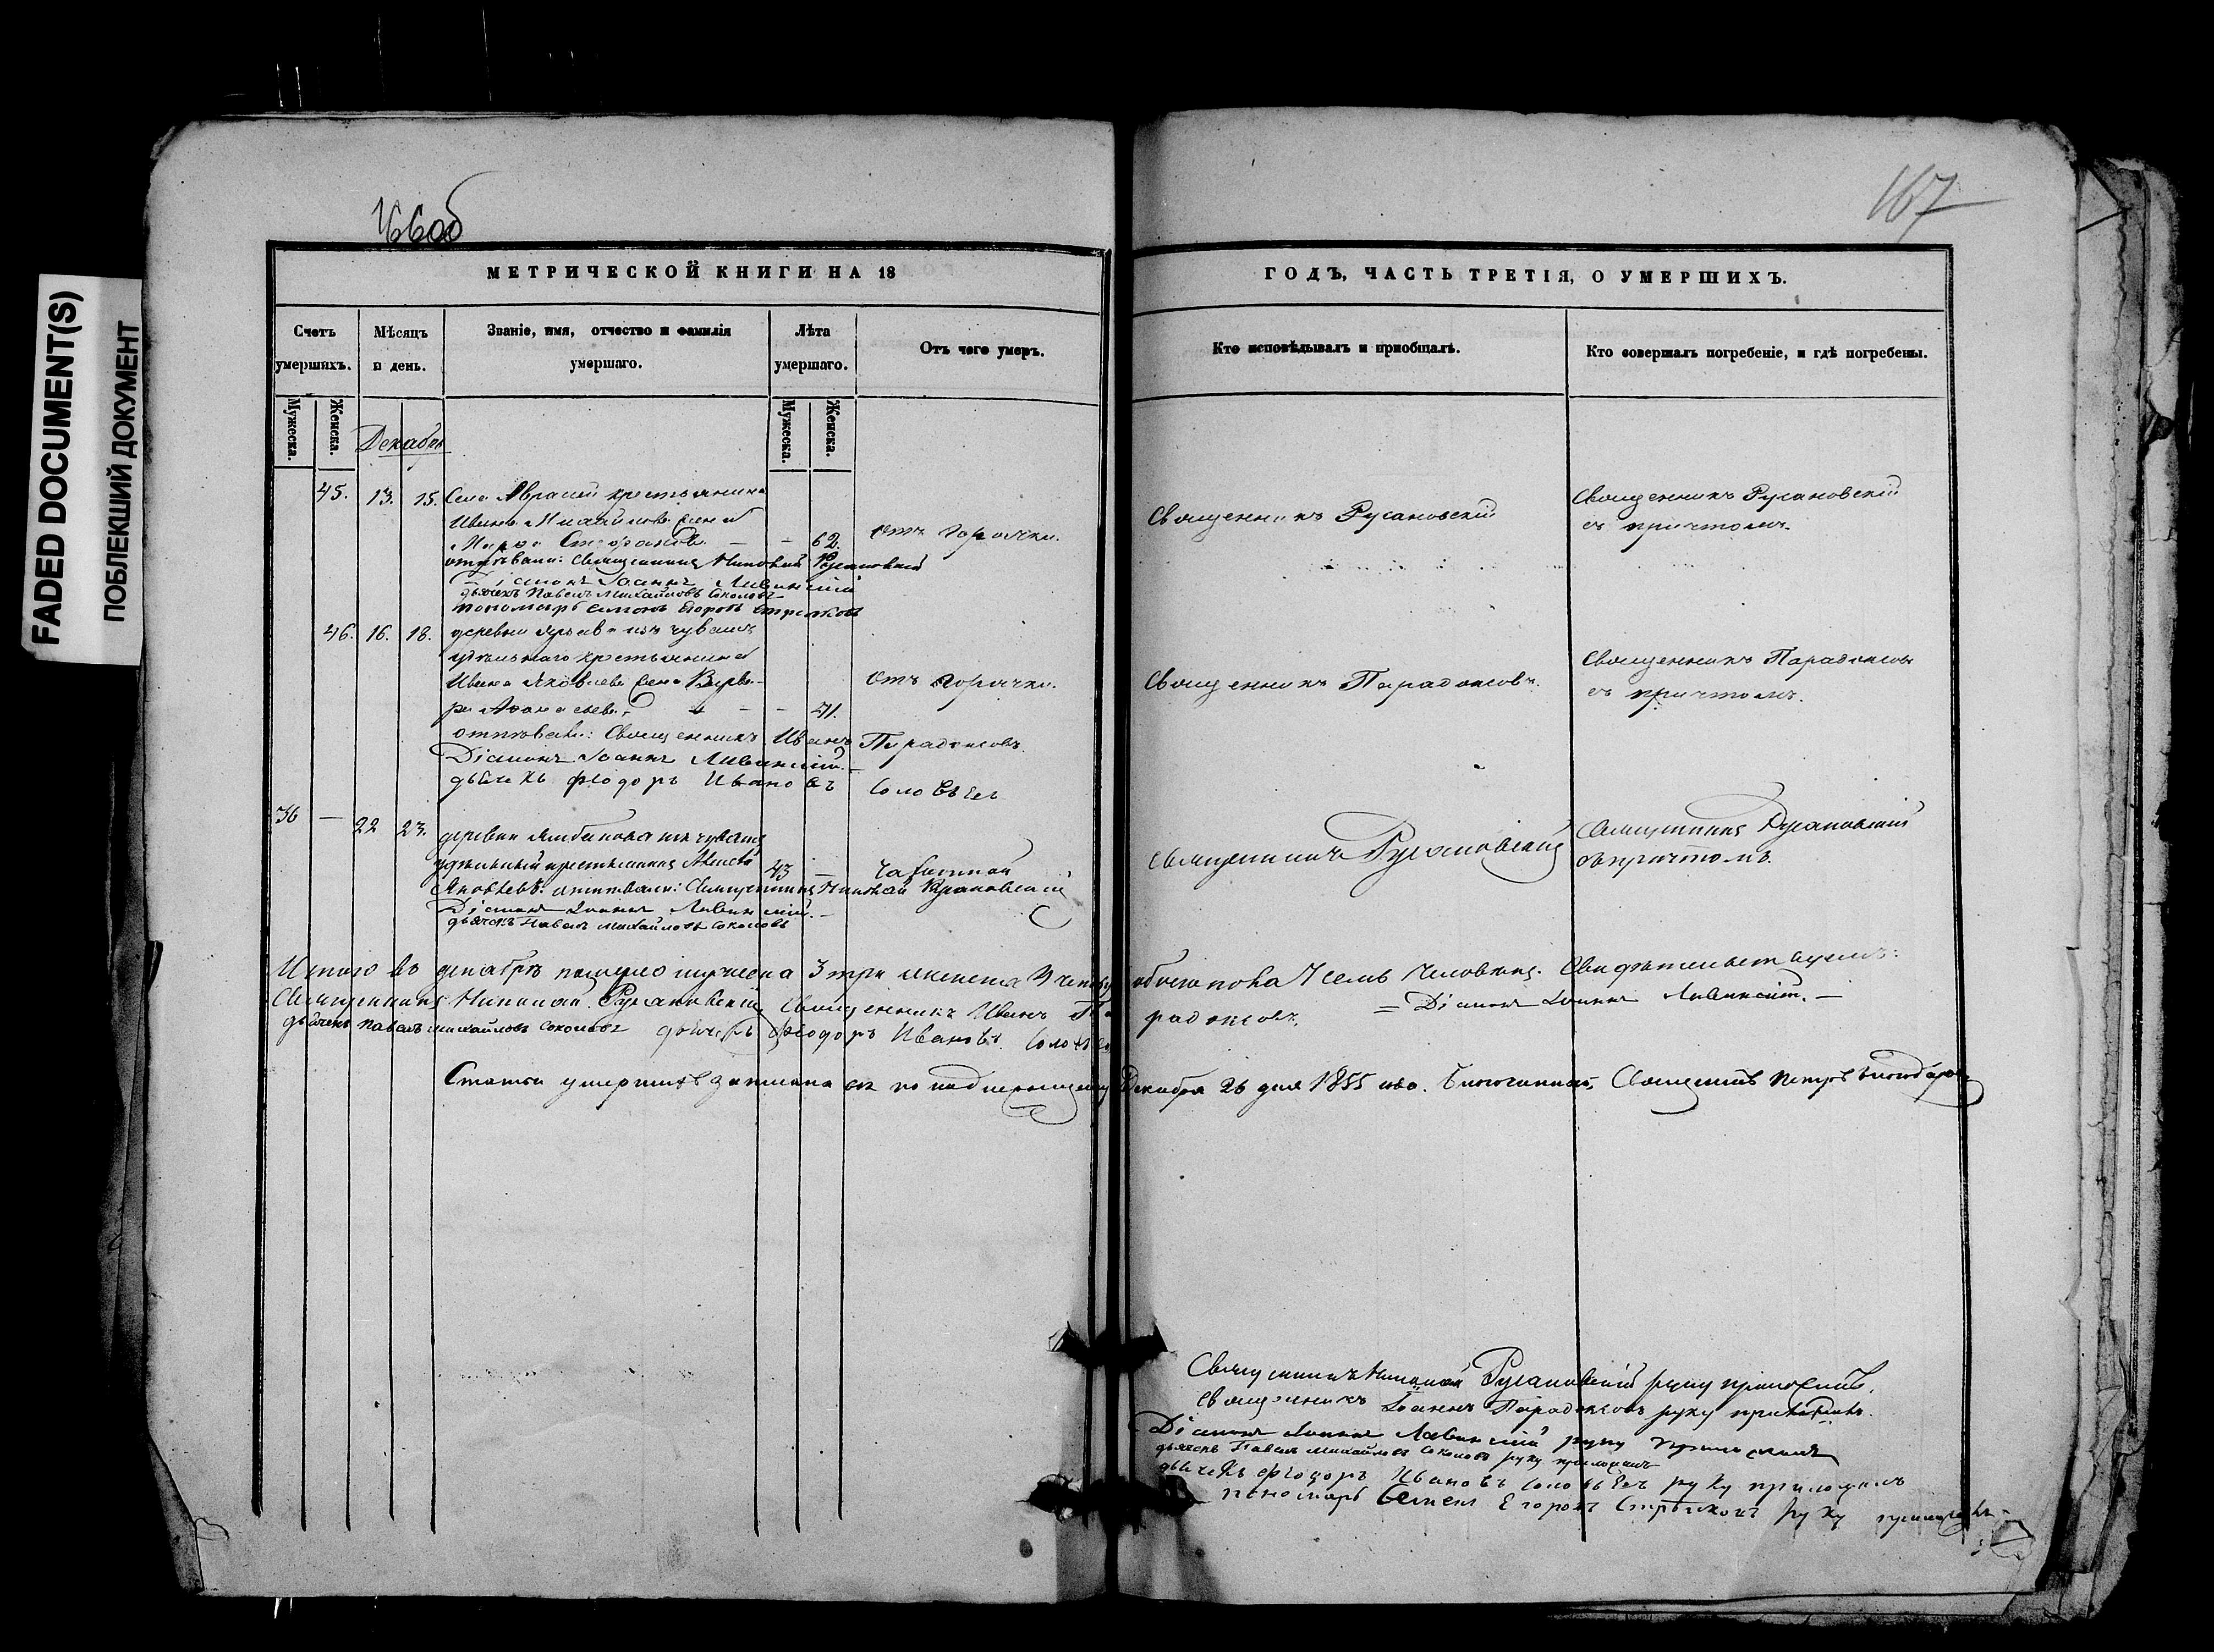 FADED DOCUMENT(S)
ПОБЛЕКШИЙ ДОКУМЕНТ
166об
167
МЕТРИЧЕСКОЙ КНИГИ НА 18
ГОДЪ, ЧАСТЬ ТРЕТІЯ, О УМЕРШИХЪ.
Счетъ умершихъ.
Мѣсяцъ и день.
Званіе, имя, отчество и фамилія умершаго.
Лѣта умершаго.
Отъ чего умеръ.
Кто исповѣдывалъ и пріобщалъ.
Кто совершалъ погребеніе, и гдѣ погребены.
Мужеска.
Женска.
Мужеска.
Женска.
Декабрь
45. 13. 15. Села крестьянина
Ивана Михайлова жена
62. отъ горячки.
Священникъ Русановскій
Священникъ Русановскій
съ причтомъ.
отпѣвали: Священникъ Николай Русановскій
Діаконъ Іоаннъ Ливанскій
дьячекъ Павелъ Михайловъ Соколовъ
пономарь Егоровъ
46. 16. 18. деревни изъ чувашъ
удѣльнаго крестьянина
Ивана Яковлева жена Варва-
ра
отъ горячки.
Священникъ Парадоксовъ.
Священникъ Парадоксовъ
съ причтомъ.
отпѣвали: Священникъ Иванъ Парадоксовъ.
Діаконъ Іоаннъ Ливанскій.
дьячекъ Феодоръ Ивановъ Соловьевъ
36 — 22 23. деревни изъ чувашъ
удѣльный крестьянинъ Алексѣй 43 —
Яковлевъ: отпѣвали: Священникъ Николай Русановскій
Діаконъ Іоаннъ Ливанскій.
дьячекъ Павелъ Михайловъ Соколовъ
Священникъ Русановскій
Священникъ Русановскій
съ причтомъ.
Итого въ декабрѣ померло мужеска 3 три женска 4 обоего пола 7 семь человѣкъ. Свидѣтельствуемъ:
Священникъ Николай Русановскій Священникъ Иванъ Парадоксовъ. = Діаконъ Іоаннъ Ливанскій. —
дьячекъ Павелъ Михайловъ Соколовъ дьячекъ Феодоръ Ивановъ
умершихъ Декабря 26 дня 1855 года. Благочинный, Священникъ Петръ
Священникъ Николай Русановскій руку приложилъ.
Священникъ Іоаннъ Парадоксовъ руку приложилъ.
Діаконъ Іоаннъ Ливанскій руку приложилъ
дьячекъ Павелъ Михайловъ Соколовъ руку приложилъ
дьячекъ Феодоръ Ивановъ Соловьевъ руку приложилъ
пономарь Семенъ Егоровъ руку приложилъ